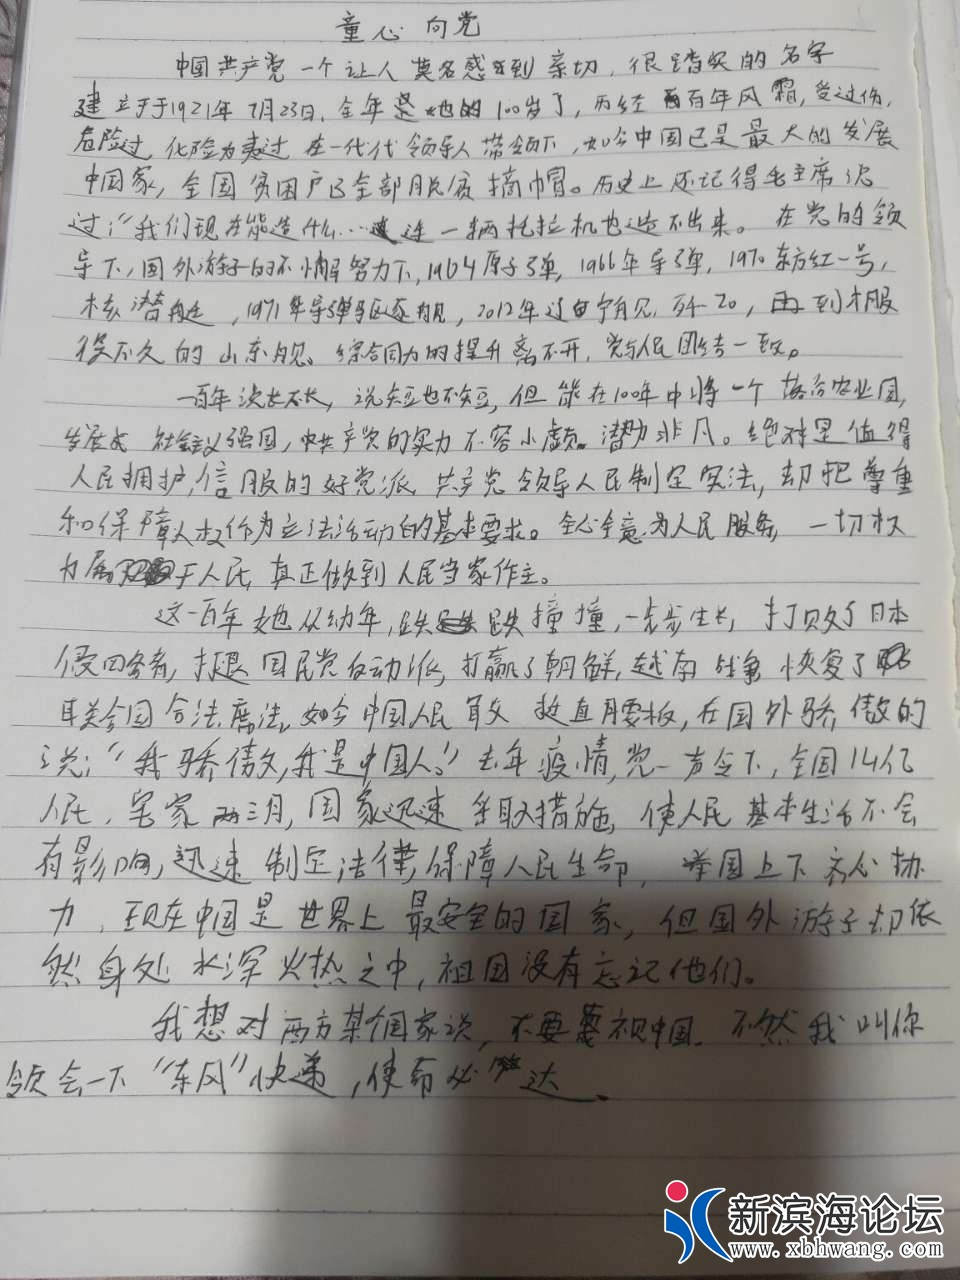 童心向党
中国共产党一个让人莫名感到亲切，很踏实的名字
建立于于1921年7月23日，今年是她的100岁了，历经百年风霜，受过伤，
危险过，化险为夷过 在一代代领导人带领下，如今中国已是最大的发展
中国家，全国贫困户已全部脱贫摘帽。历史上还记得毛主席说
过：“我们现在能造什么……连一辆托拉机也造不出来。在党的领
导下，国外游子的不懈努力下，1964原子弹，1966年导弹，1970东方红一号，
核潜艇，1971年导弹驱逐舰，2012年辽宁舰，歼20，再到才服
役不久的山东舰。综合国力的提升离不开，党与人民团结一致。
一百年说长不长，说短也不短，但能在100年中将一个落后农业国，
发展成 社会主义强国，中共产党的实力不容小觑。潜力非凡。绝对是值得
人民拥护，信服的好党派 共产党领导人民制定宪法，却把尊重
和保障人权作为立法活动的基本要求。全心全意为人民服务，一切权
力属于人民，真正做到人民当家作主。
这一百年她从幼年，跌跌撞撞，一步步生长，打败了日本
侵四务，打退国民党反动派，打赢了朝鲜，越南战争 恢复了
联合国合法席法，如今中国人民敢挺直腰板，在国外骄傲的
说：“我骄傲，我是中国人。”去年疫情，党一声令下，全国14亿
人民，宅家两三月，国家迅速采取措施，使人民基本生活不会
有影响，迅速制定法律，保障人民生命，举国上下齐心协
力，现在中国是世界上最安全的国家，但国外游子却依
然身处水深火热之中，祖国没有忘记他们。
我想对西方某个国家说，不要蔑视中国，不然我叫你
领会一下“东风”快递，使命必达。
新滨海论坛
www.xbhwang.com